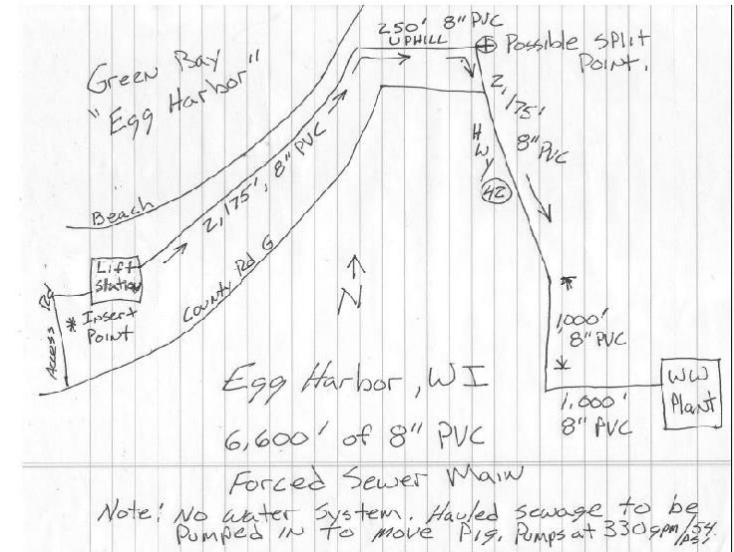 250' 8" PVC
UPHILL
Possible Split
Point.
Green Bay
"Egg Harbor"
2,175'
8" PVC
HWY
42
2,175', 8" PVC
Beach
Lift
Station
* Insert
Point
Access Rd
County Rd G
N
1,000'
8" PVC
WW
Plant
1,000'
8" PVC
Egg Harbor, WI
6,600' of 8" PVC
Forced Sewer Main
Note: No water System. Hauled sewage to be
Pumped in To move Pig. Pumps at 330gpm/54
PSI